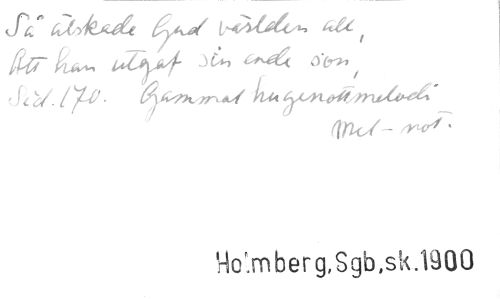 Så älskade Gud världen all,
Att han utgaf sin ende son,
Sid. 170. Gammal hugenottmelodi
Mel-not.
Holmberg,Sgb,sk.1900